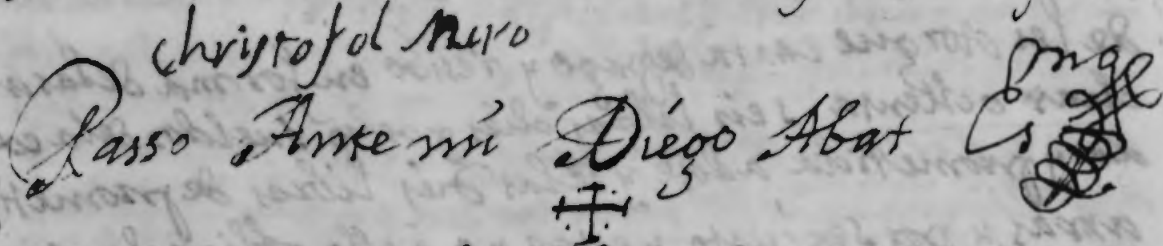 christofol Miro
Passo Ante mi Diego Abat Es